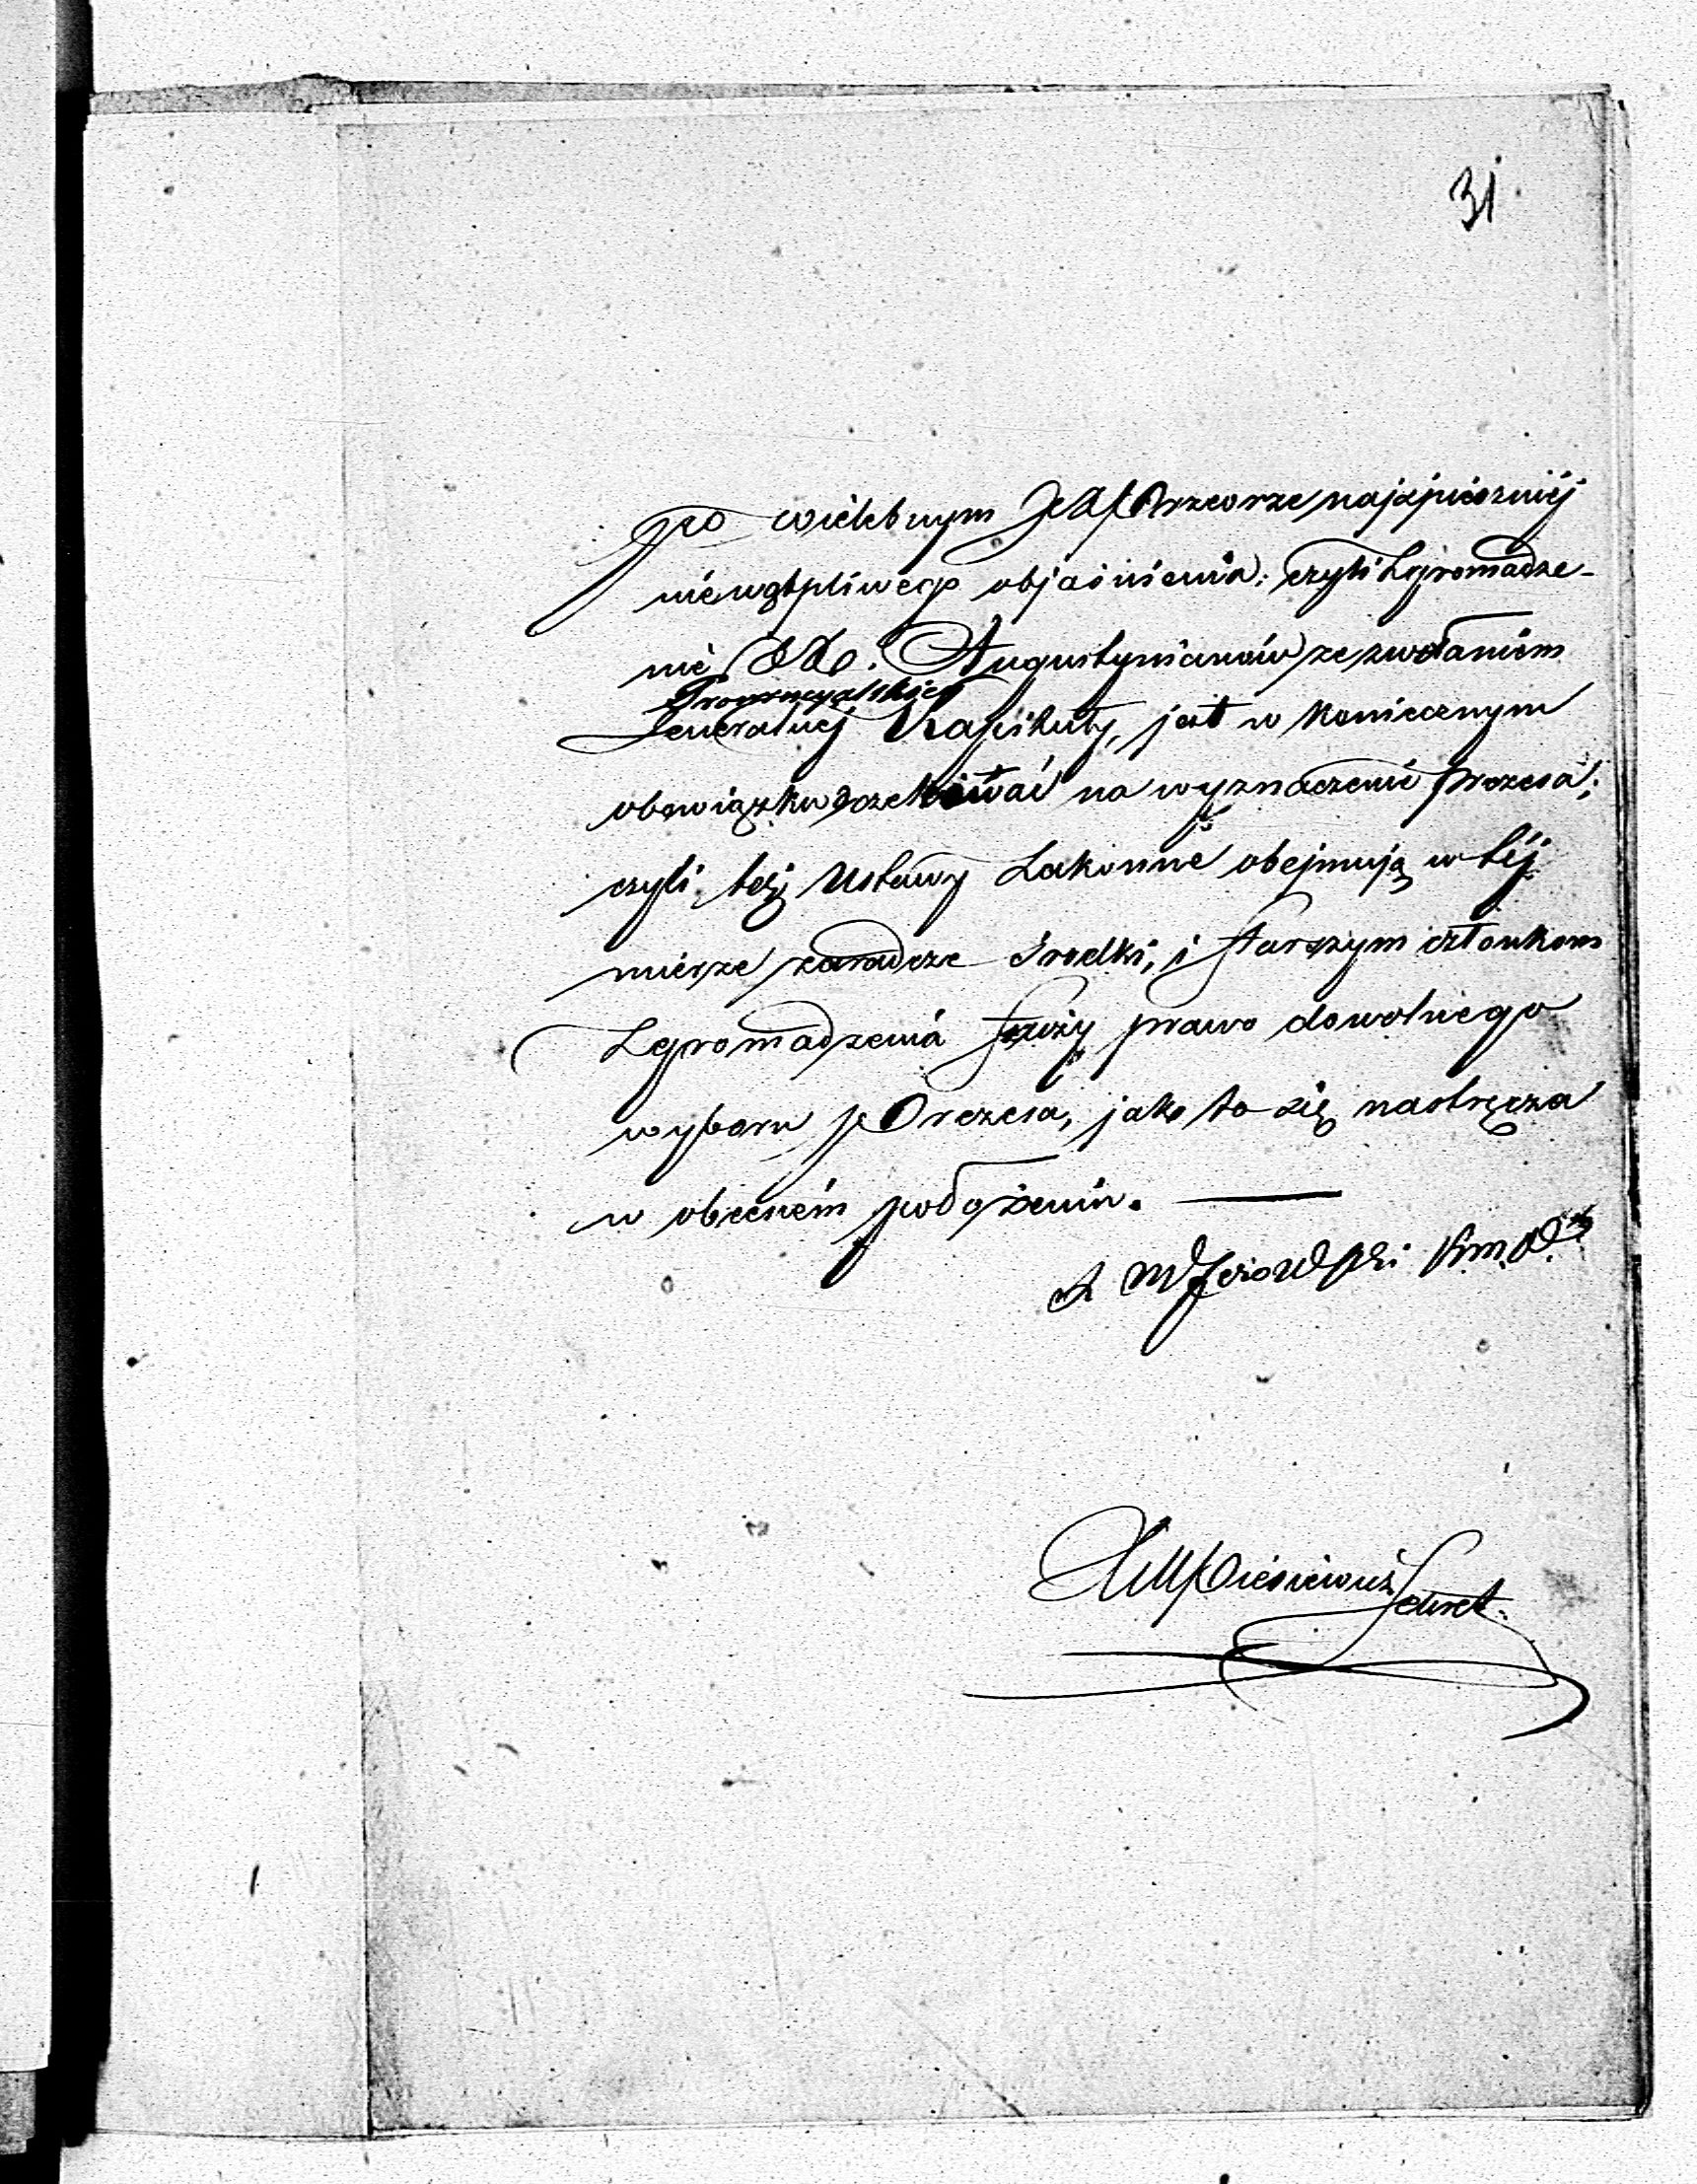 31
po wielebnym Jego Przeorze najspieszniéj
niewątpliwego objaśnienia: czyli Zgromadze-
nie XX. Augustynianów ze zwołaniem
Prowincyalskiej
Jeneralnej Kapituły, jest w koniecznym
obowiązku oczekiwać na wyznaczenie Prezesa;
czyli też Ustawy Zakonne obejmują w téj
mierze zaradcze środki, i starszym członkom
Zgromadzenia służy prawo dowolnego
wyboru Prezesa, jako to się nastręcza
w obecném położeniu. —
Sekret.